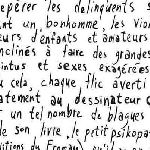 epérer les délinquents s
nt un bonhomme, les vio
eurs d'enfants et amateurs
nclinés à faire des grandes
intus et sexes exagérées
u cela, chaque flic averti
atement au dessinateur
un tel nombre de blagues
de son livre, le petit psikopa
ditions du Fromage)